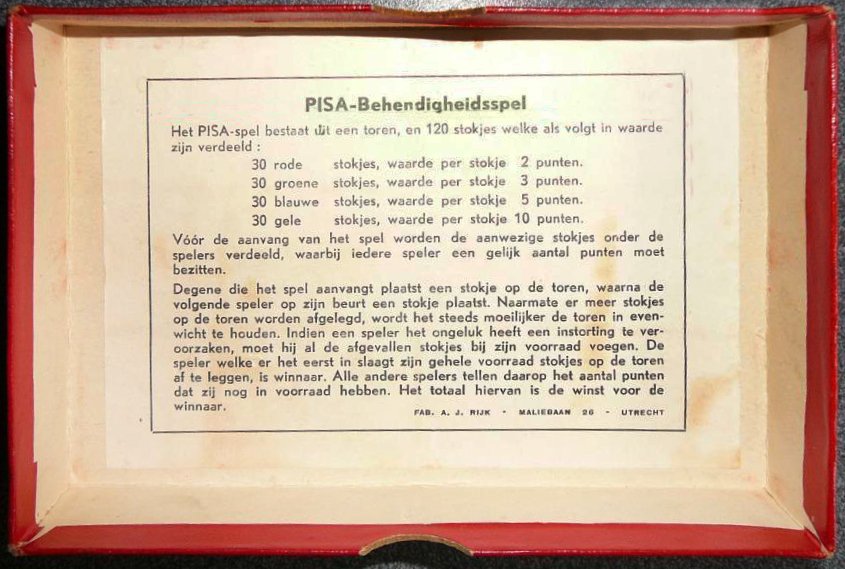 PISA-Behendigheidsspel
Het PISA-spel bestaat uit een toren, en 120 stokjes welke als volgt in waarde
zijn verdeeld :
30 rode stokjes, waarde per stokje 2 punten.
30 groene stokjes, waarde per stokje 3 punten.
30 blauwe stokjes, waarde per stokje 5 punten.
30 gele stokjes, waarde per stokje 10 punten.
Vóór de aanvang van het spel worden de aanwezige stokjes onder de
spelers verdeeld, waarbij iedere speler een gelijk aantal punten moet
bezitten.
Degene die het spel aanvangt plaatst een stokje op de toren, waarna de
volgende speler op zijn beurt een stokje plaatst. Naarmate er meer stokjes
op de toren worden afgelegd, wordt het steeds moeilijker de toren in even-
wicht te houden. Indien een speler het ongeluk heeft een instorting te ver-
oorzaken, moet hij al de afgevallen stokjes bij zijn voorraad voegen. De
speler welke er het eerst in slaagt zijn gehele voorraad stokjes op de toren
af te leggen, is winnaar. Alle andere spelers tellen daarop het aantal punten
dat zij nog in voorraad hebben. Het totaal hiervan is de winst voor de
winnaar.
FAB. A. J. RIJK - MALIEBAAN 26 - UTRECHT